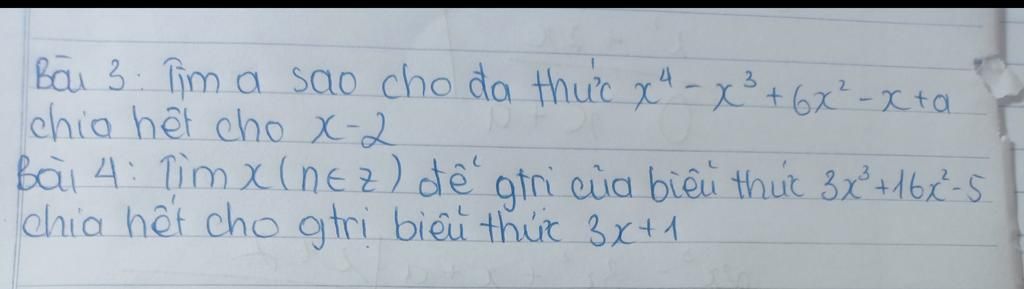 Bài 3: Tìm a sao cho đa thức x⁴ - x³ + 6x² - x + a
chia hết cho x - 2
Bài 4: Tìm x (n ∈ z) để gtri của biểu thức 3x³ + 16x² - 5
chia hết cho gtrị biểu thức 3x + 1